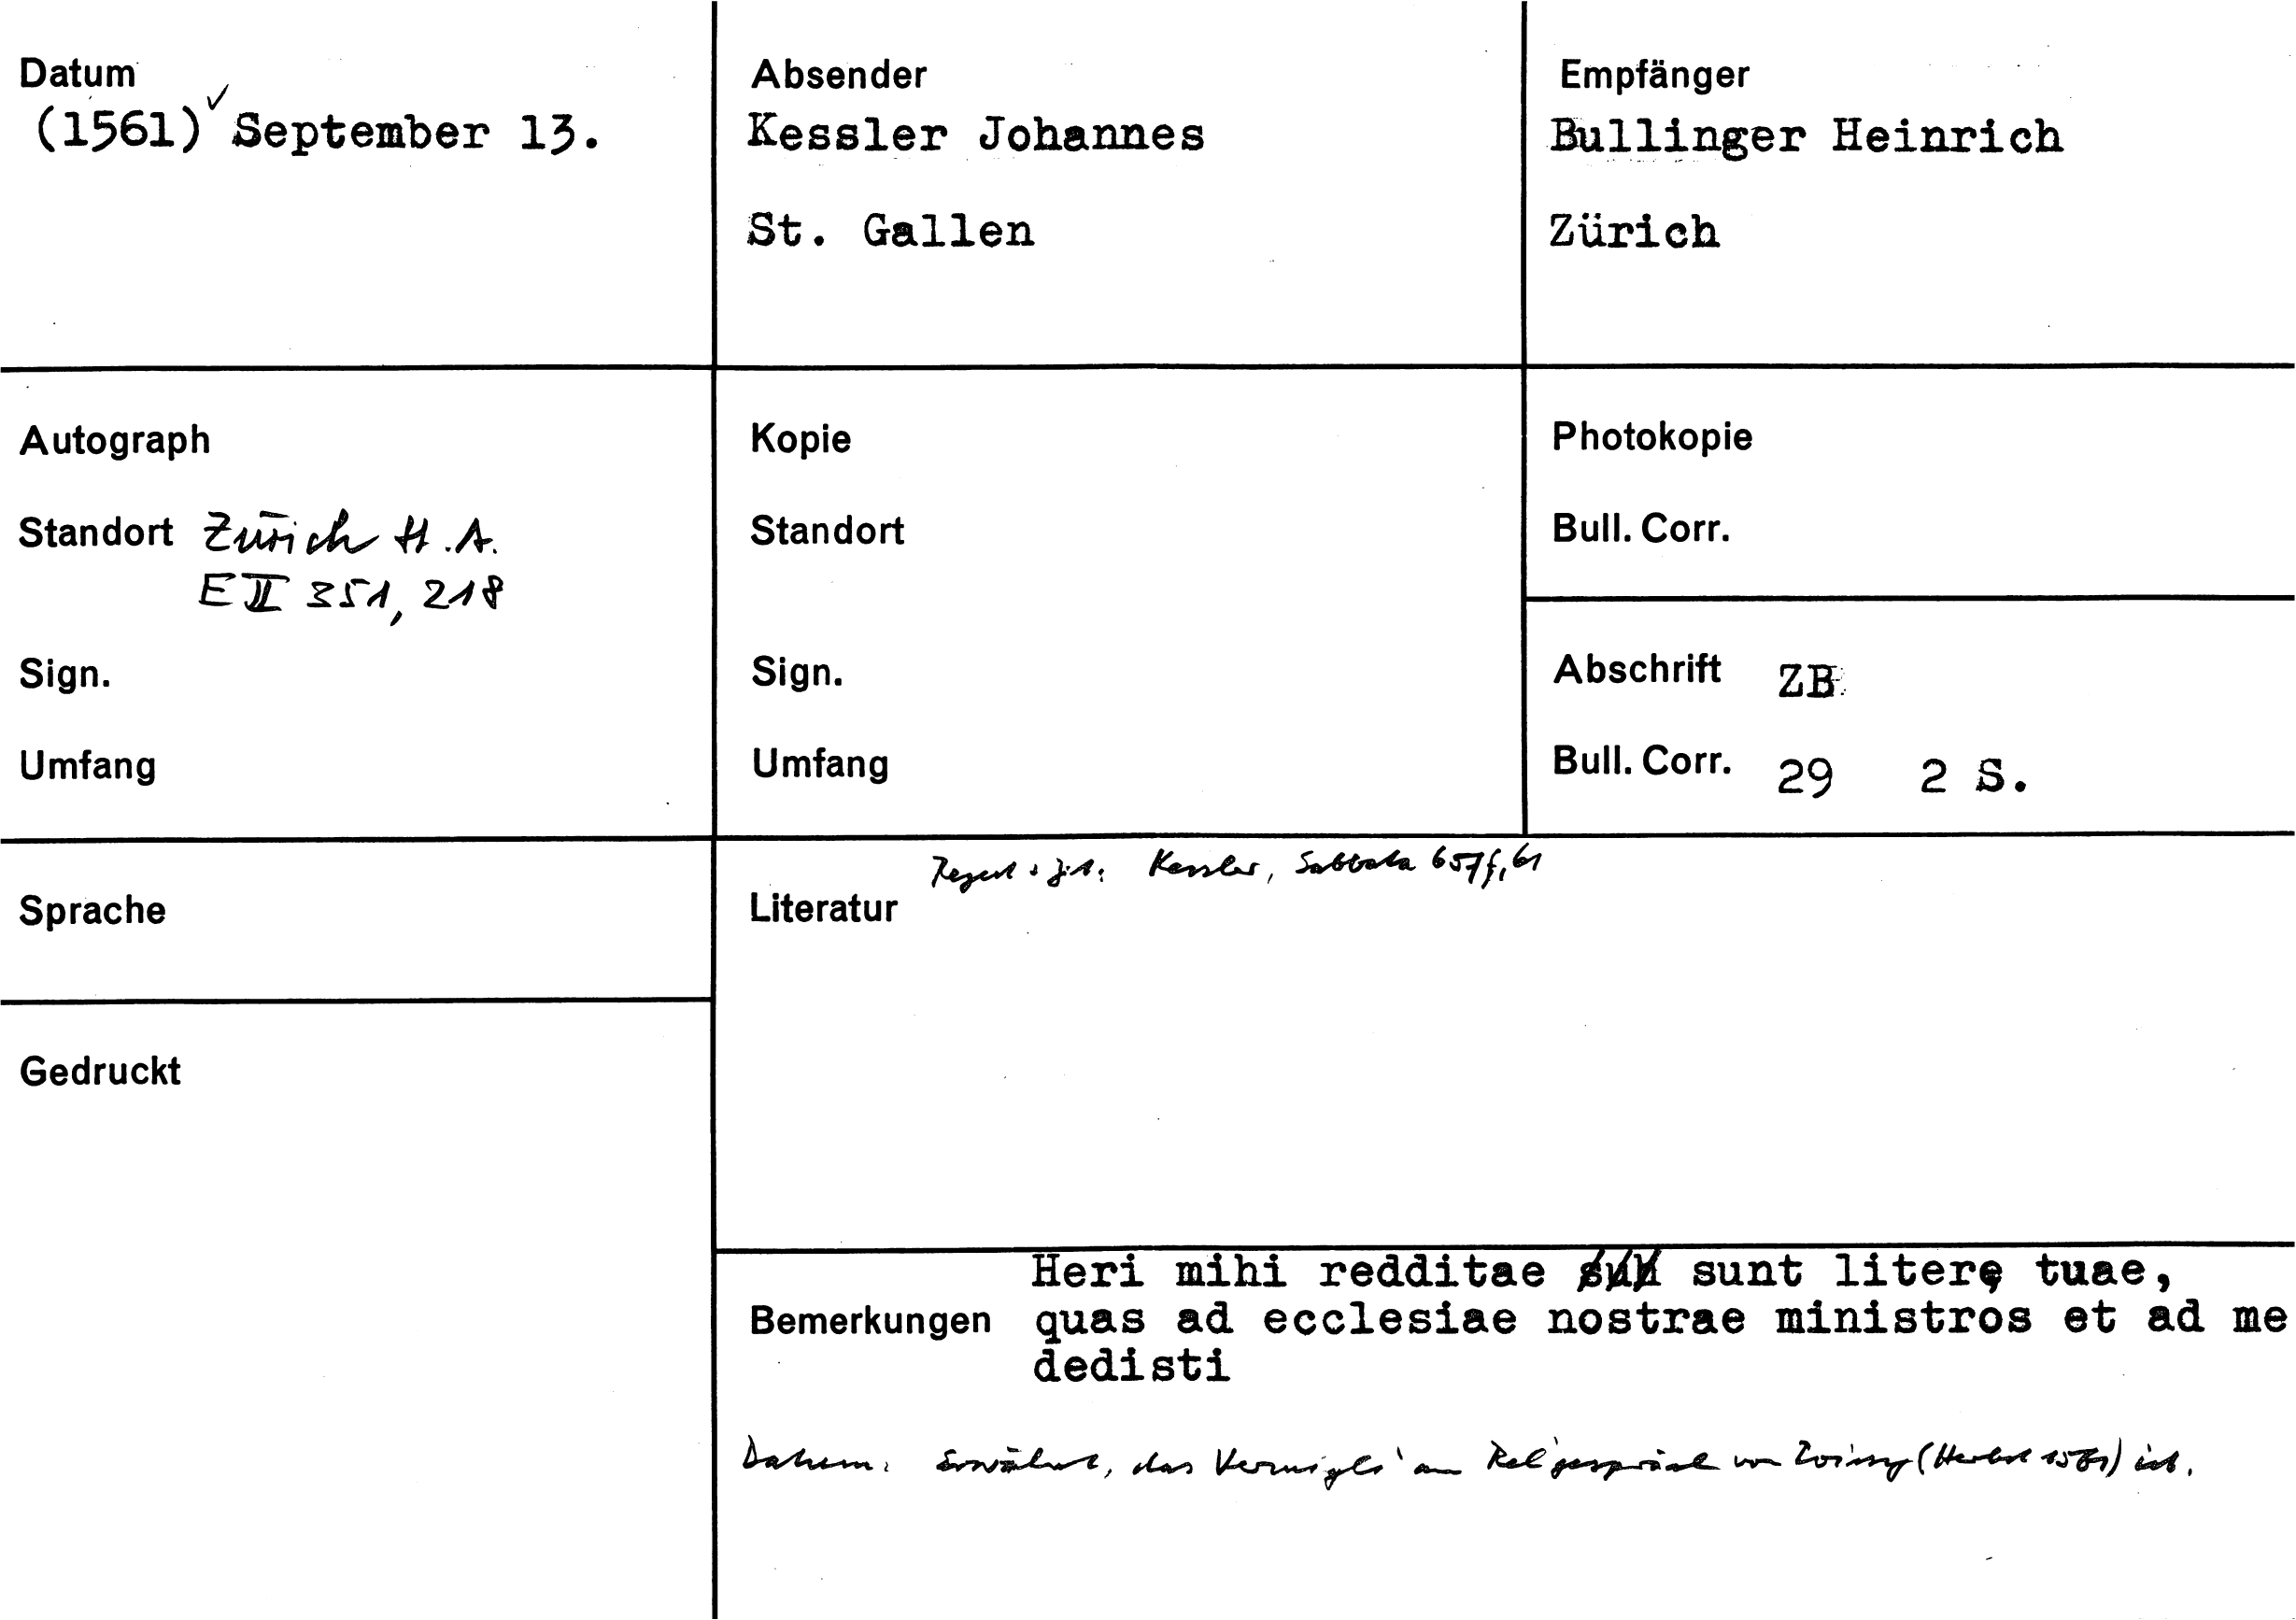 Datum
(1561) ✓ September 13.
Absender
Kessler Johannes
St. Gallen
Empfänger
Bullinger Heinrich
Zürich
Autograph
Standort Zürich H.A.
E II 351, 218
Sign.
Umfang
Kopie
Standort
Sign.
Umfang
Photokopie
Bull. Corr.
Abschrift ZB
Bull. Corr. 29 2 S.
Sprache
Kessler, Sabbata 657f, 61
Literatur
Gedruckt
Heri mihi redditae sunt literę tuae,
Bemerkungen quas ad ecclesiae nostrae ministros et ad me
dedisti
Datum: Erwähnt, das Vermigli am Rel'gespräch von Poissy (Herbst 1561) ist.